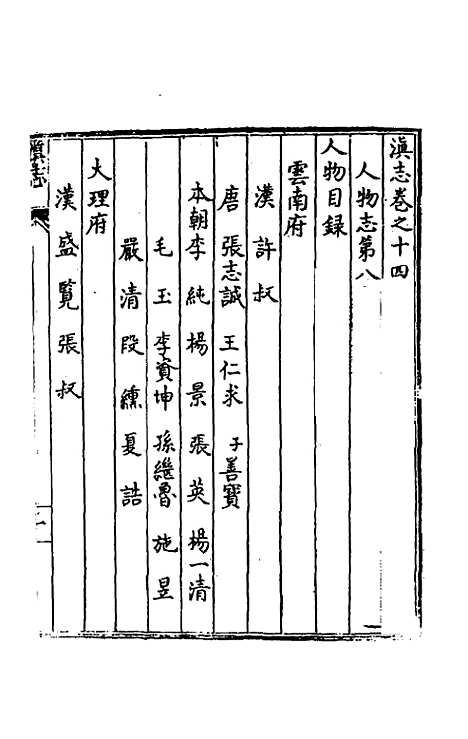 滇志卷之十四
人物志第八
人物目録
雲南府
漢 許叔
唐 張志誠 王仁求 子善寳
本朝李純 楊景 張英 楊一清
毛玉 李資坤 孫繼魯 施昱
嚴清 段纁 夏誥
大理府
漢 盛覧 張叔
滇志